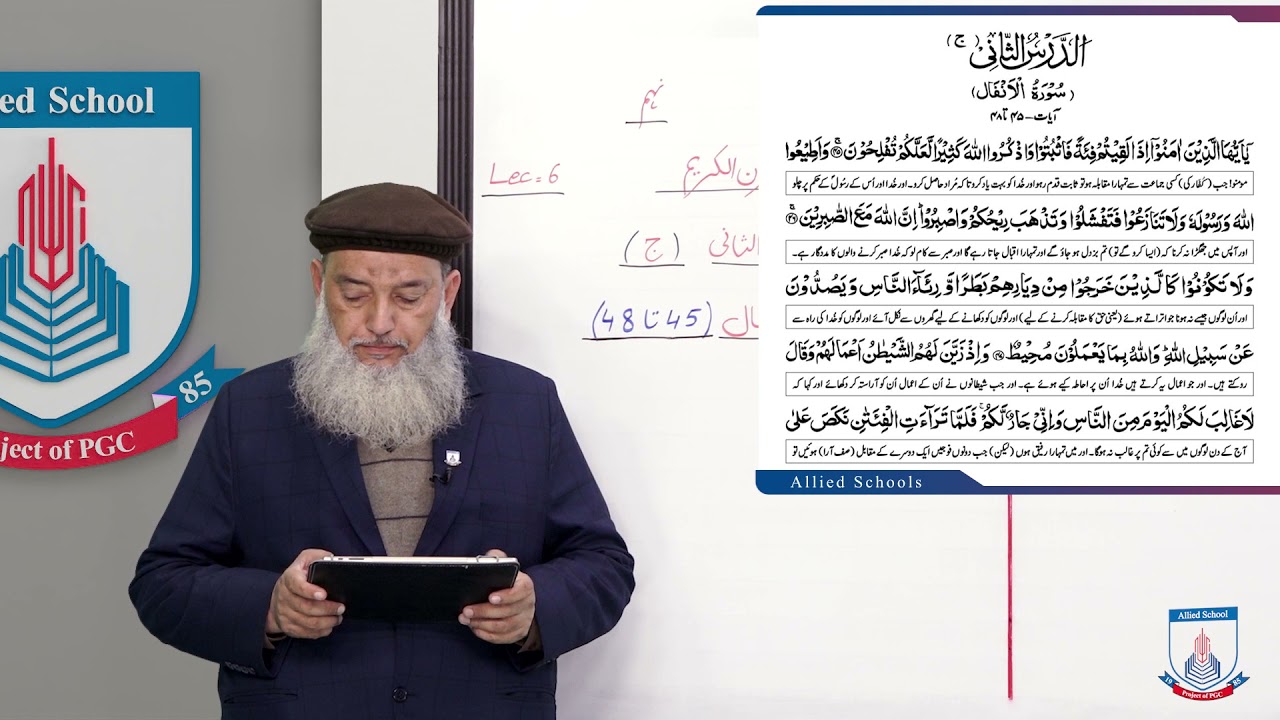 ed School
85
ject of PGC
نہم
Lec = 6
ن الکریم
الثانی (ج)
ال (45 تا 48)
اَلدَّرْسُ الثَّانِیْ (ج)
(سُوْرَۃُ الْاَنْفَالِ)
آیات - ۴۵ تا ۴۸
یٰۤاَیُّهَا الَّذِیْنَ اٰمَنُوْۤا اِذَا لَقِیْتُمْ فِئَةً فَاثْبُتُوْا وَ اذْكُرُوا اللّٰهَ كَثِیْرًا لَّعَلَّكُمْ تُفْلِحُوْنَ ۴۵ وَ اَطِیْعُوا
مومنو! جب (کفار کی) کسی جماعت سے تمہارا مقابلہ ہو تو ثابت قدم رہو اور خُدا کو بہت یاد کرو تا کہ مُراد حاصل کرو۔ اور خُدا اور اُس کے رسُولؐ کے حکم پر چلو
اللّٰهَ وَ رَسُوْلَهٗ وَ لَا تَنَازَعُوْا فَتَفْشَلُوْا وَ تَذْهَبَ رِیْحُكُمْ وَ اصْبِرُوْا ؕ اِنَّ اللّٰهَ مَعَ الصّٰبِرِیْنَ ۴۶
اور آپس میں جھگڑا نہ کرنا کہ (ایسا کرو گے تو) تم بزدل ہو جاؤ گے اور تمہارا اقبال جاتا رہے گا اور صبر سے کام لو کہ خُدا صبر کرنے والوں کا مددگار ہے۔
وَ لَا تَكُوْنُوْا كَالَّذِیْنَ خَرَجُوْا مِنْ دِیَارِهِمْ بَطَرًا وَّ رِئَآءَ النَّاسِ وَ یَصُدُّوْنَ
اور اُن لوگوں جیسے نہ ہونا جو اتراتے ہوئے (یعنی حق کا مقابلہ کرنے کے لیے) اور لوگوں کو دکھانے کے لیے گھروں سے نکل آئے اور لوگوں کو خُدا کی راہ سے
عَنْ سَبِیْلِ اللّٰهِ ؕ وَ اللّٰهُ بِمَا یَعْمَلُوْنَ مُحِیْطٌ ۴۷ وَ اِذْ زَیَّنَ لَهُمُ الشَّیْطٰنُ اَعْمَالَهُمْ وَ قَالَ
روکتے ہیں۔ اور جو اعمال یہ کرتے ہیں خُدا اُن پر احاطہ کیے ہوئے ہے۔ اور جب شیطانوں نے اُن کے اعمال اُن کو آراستہ کر دکھائے اور کہا کہ
لَا غَالِبَ لَكُمُ الْیَوْمَ مِنَ النَّاسِ وَ اِنِّیْ جَارٌ لَّكُمْ ۚ فَلَمَّا تَرَآءَتِ الْفِئَتٰنِ نَكَصَ عَلٰی
آج کے دن لوگوں میں سے کوئی تم پر غالب نہ ہوگا۔ اور میں تمہارا رفیق ہوں (لیکن) جب دونوں فوجیں ایک دوسرے کے مقابل (صف آرا) ہوئیں تو
Allied Schools
Allied School
19 85
Project of PGC